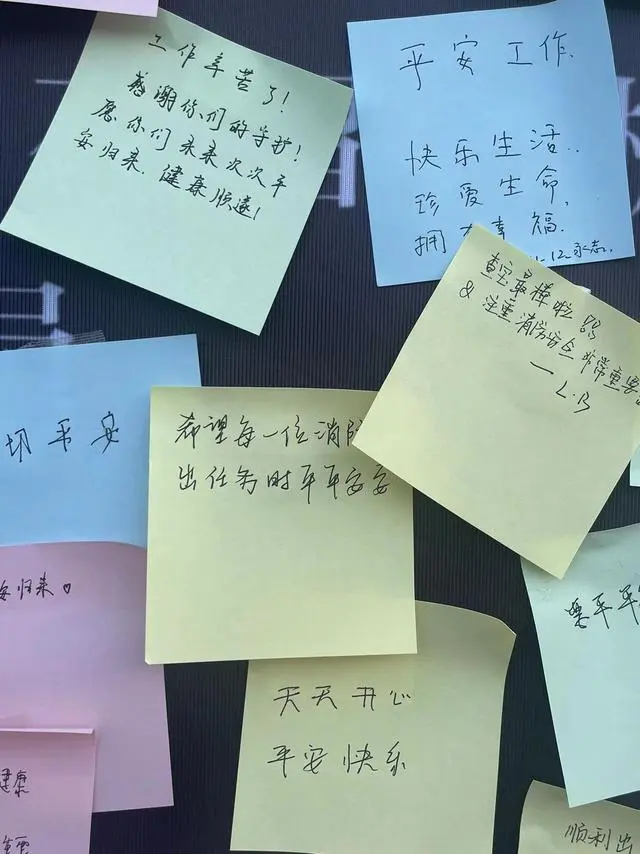 工作辛苦了！
感谢你们的守护！
愿你们未来次次平
安归来.健康顺遂！
平安工作
快乐生活..
珍爱生命,
拥有幸福.
12.永志.
最棒啦
& 注重消防安全非常重要
— L.B
切平安
希望每一位消防
出任务时平平安安
安归来♡
天天开心
平安快乐
要平平
健康
顺利出